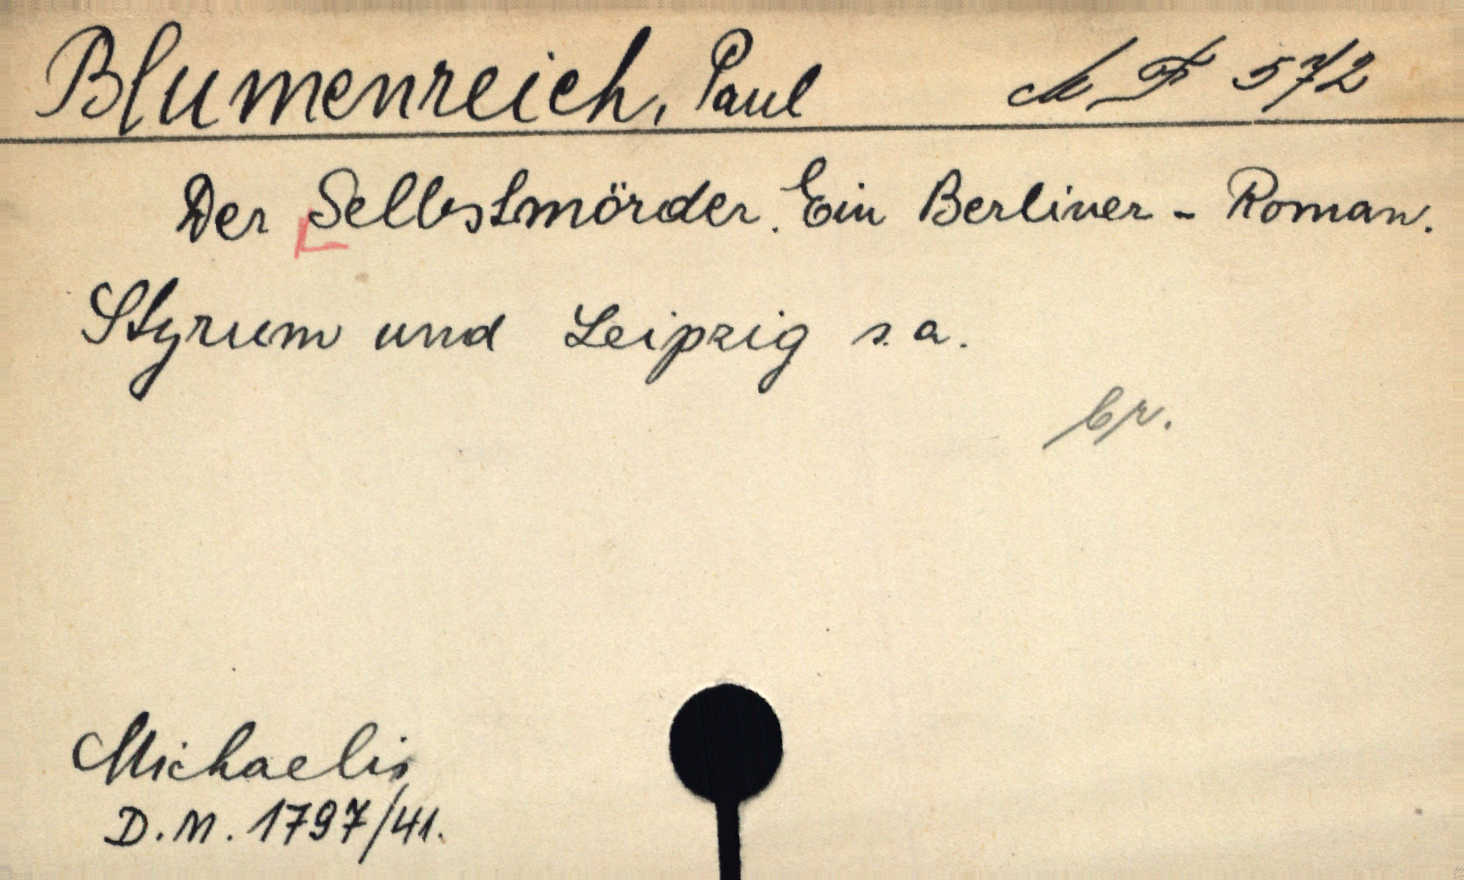 Blumenreich, Paul M F 572
Der Selbstmörder. Ein Berliner - Roman.
Styrum und Leipzig s. a.
br.
Michaelis
D. M. 1797/41.